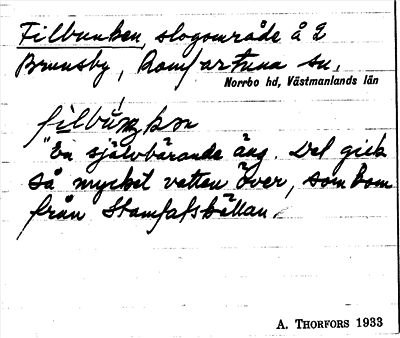 Filbunken, slogområde å 2
Brunsby, Romfartuna sn.
Norrbo hd, Västmanlands län
filbúŋkən
"En självbärande äng. Det gick
så mycket vatten över, som kom
från Stamfafskällan.
A. THORFORS 1933